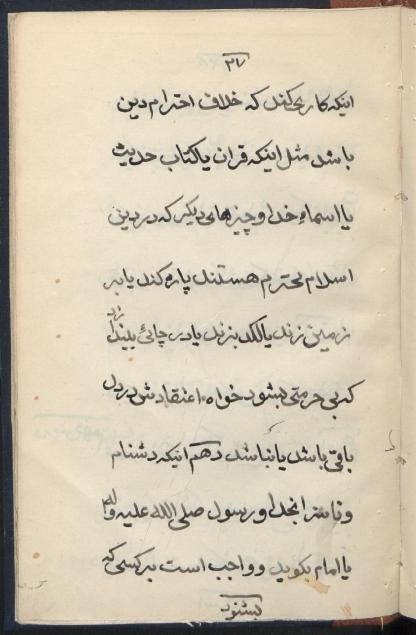 ۳۷
اینکه کاری بکند که خلاف احترام دین
باشد مثل اینکه قران یا کتاب حدیث
یا اسماء خدا و چیزهای دیگر که در دین
اسلام محترم هستند پاره کند یا بر
زمین زند یا لگد بزند یا در جائی بیندازد
که بی حرمتی بشود خواه اعتقادش در دل
باقی باشد یا نباشد دهم اینکه دشنام
و ناسزا بخدا و رسول صلی الله علیه واله
یا امام بگوید و واجب است بر کسی که
بشنود